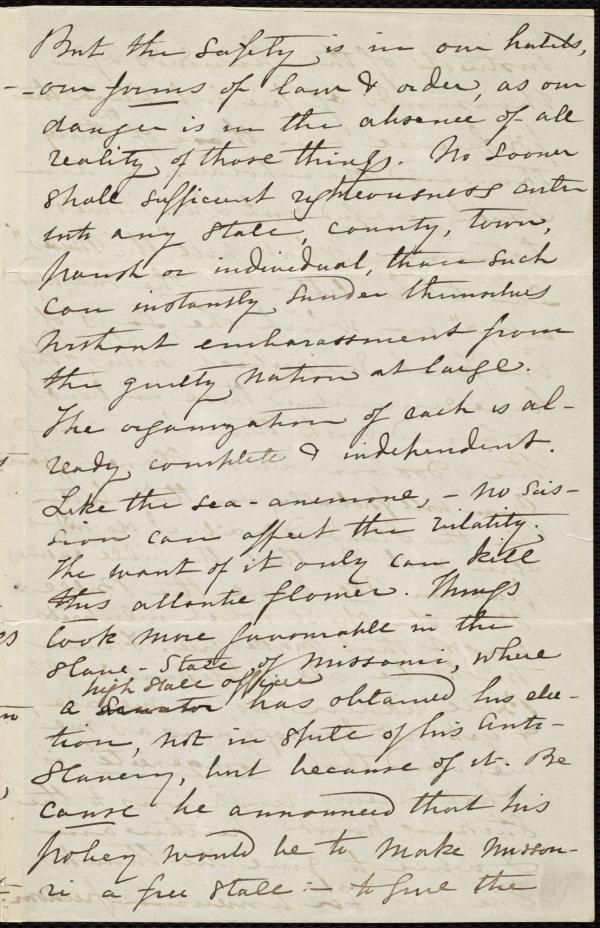 But the safety is in our habits,
- our forms of law & order, as our
danger is in the absence of all
reality of those things. No sooner
shall sufficient righteousness enter
into any State, county, town,
parish or individual, than such
can instantly sunder themselves
without embarrassment from
the guilty nation at large.
The organization of each is al-
ready complete & independent.
Like the sea-anemone, - no scis-
sion can affect the vitality.
The want of it only can kill
this atlantic flower. Things
look more favourable in the
Slave-State of Missouri, where
high State officer
a Senator has obtained his elec-
tion, not in spite of his Anti-
Slavery, but because of it. Be
cause he announced that his
policy would be to make Missou-
ri a free State :- to give the